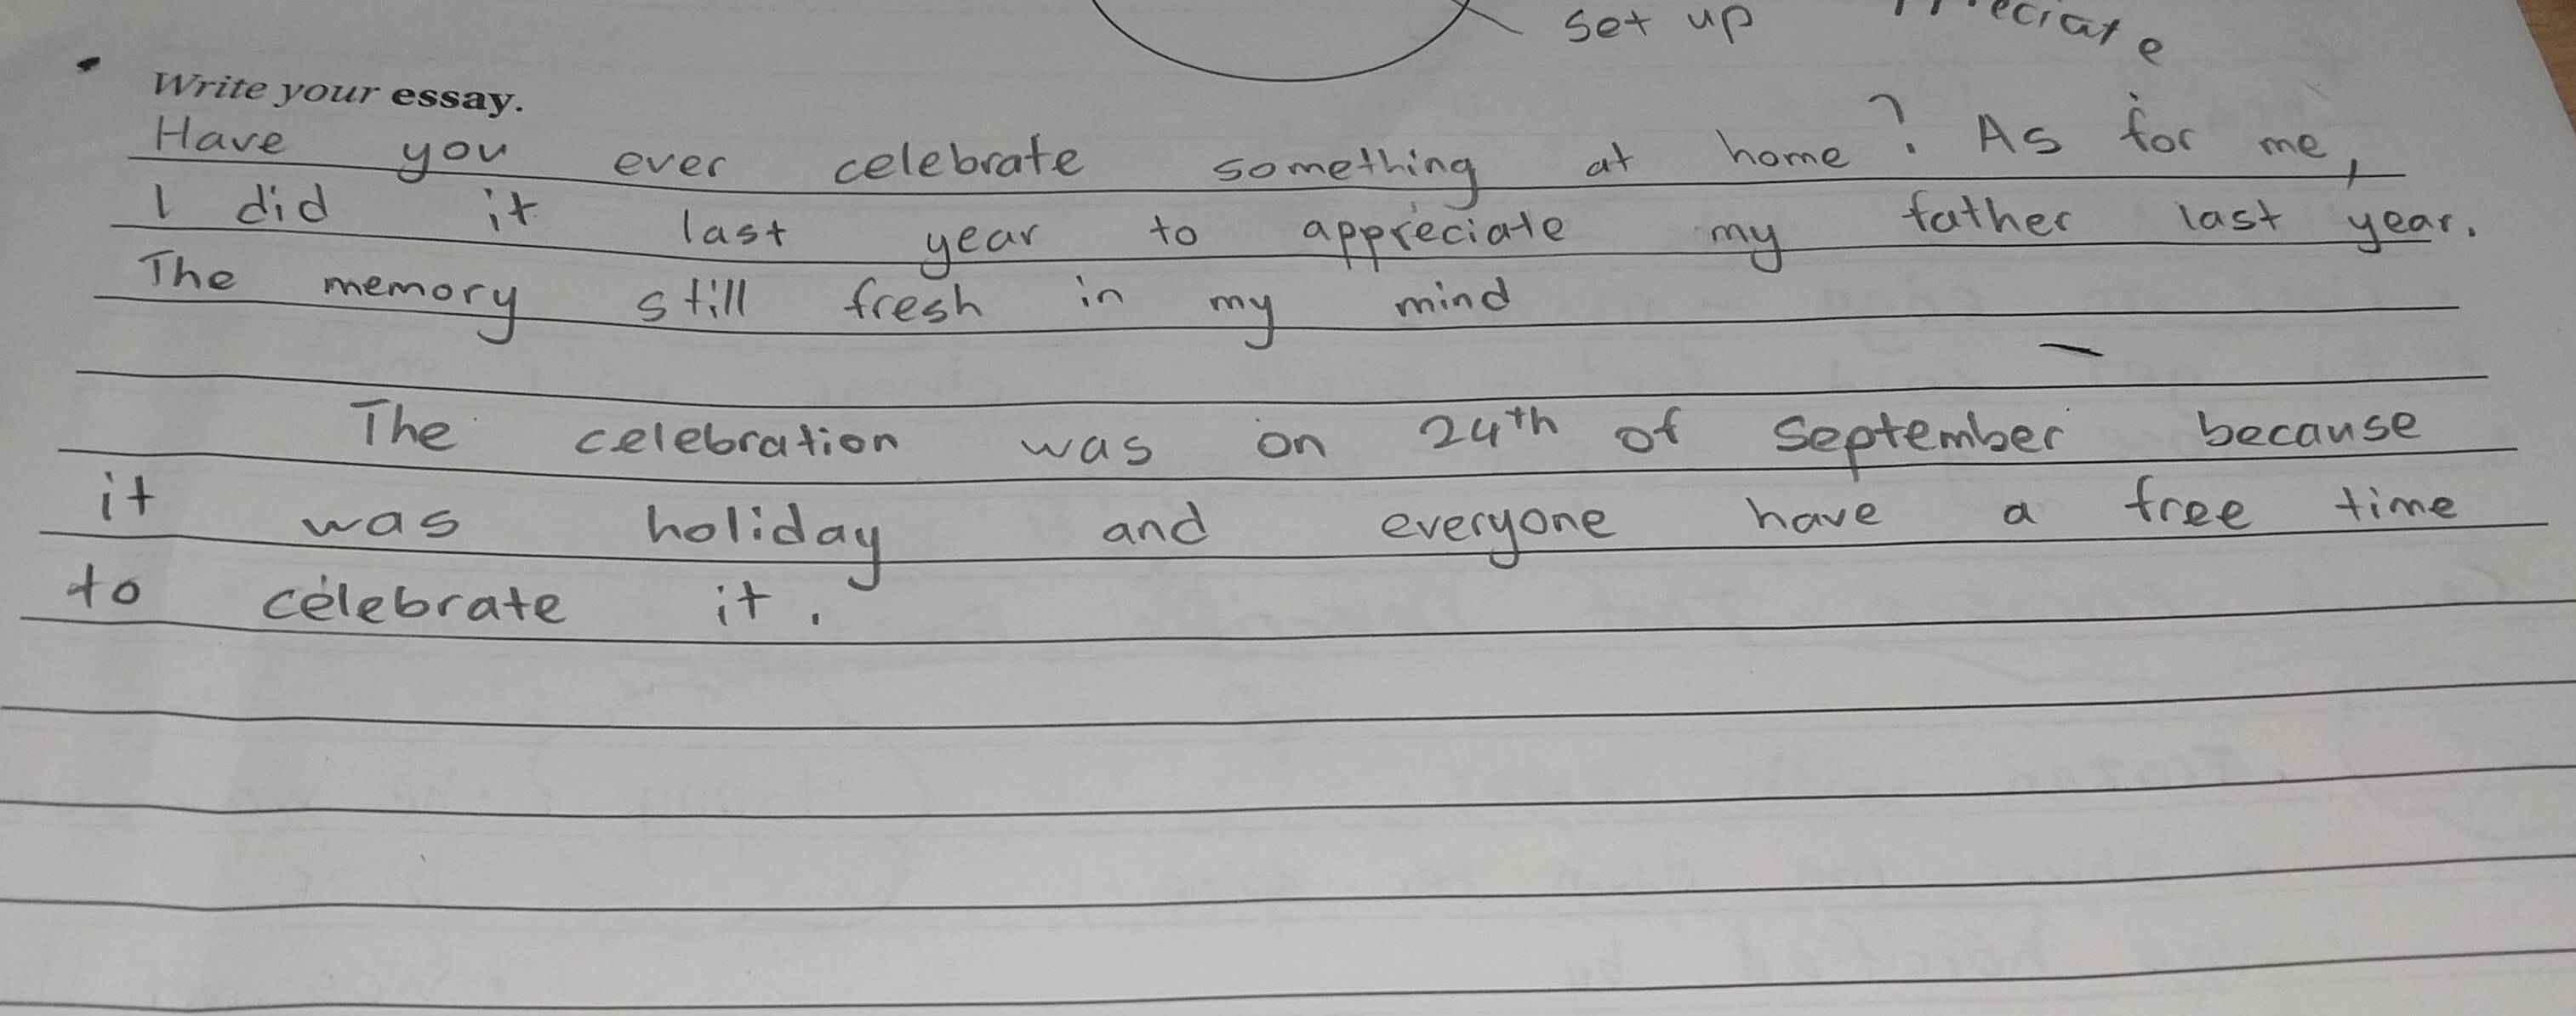 set up
Write your essay.
Have you ever celebrate something at home? As for me,
I did it last year to appreciate my father last year.
The memory still fresh in my mind
The celebration was on 24th of September because
it was holiday and everyone have a free time
to celebrate it.